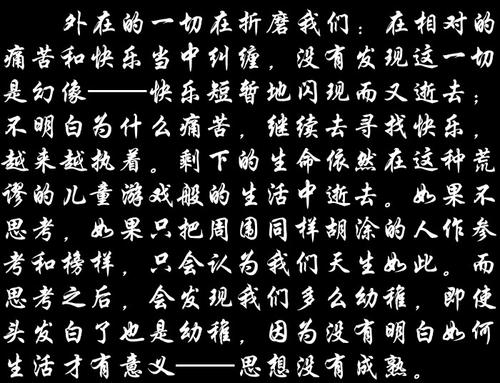 外在的一切在折磨我们：在相对的
痛苦和快乐当中纠缠，没有发现这一切
是幻像——快乐短暂地闪现而又逝去；
不明白为什么痛苦，继续去寻找快乐，
越来越执着。剩下的生命依然在这种荒
谬的儿童游戏般的生活中逝去。如果不
思考，如果只把周围同样胡涂的人作参
考和榜样，只会认为我们天生如此。而
思考之后，会发现我们多么幼稚，即使
头发白了也是幼稚，因为没有明白如何
生活才有意义——思想没有成熟。